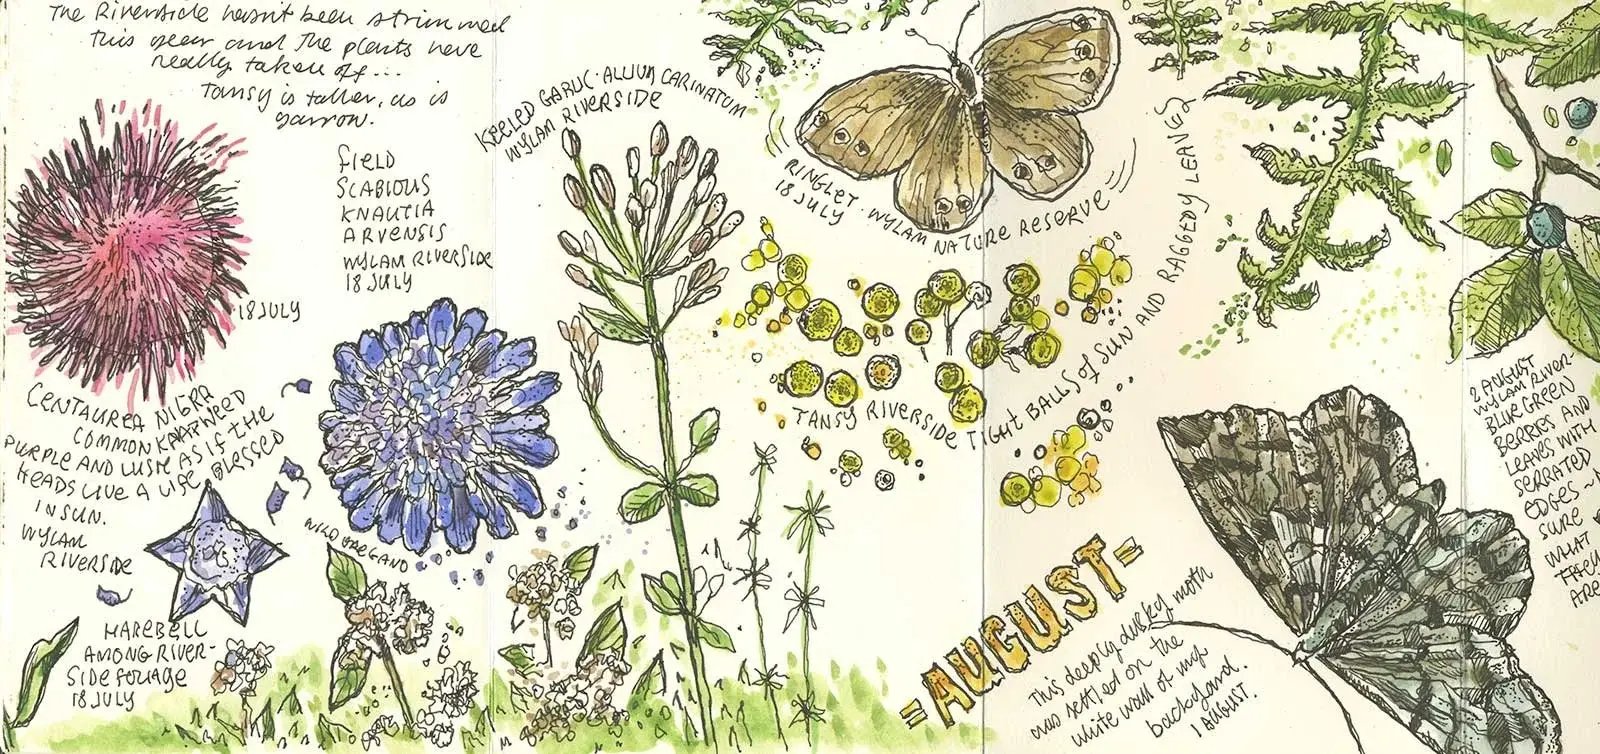 The Riverside hasn't been strimmed
this year and the plants have
really taken off...
Tansy is taller, as is
yarrow.
18 JULY
CENTAUREA NIGRA
COMMON KNAPWEED
PURPLE AND LUSH AS IF THE
HEADS LIVE A LIFE BLESSED
IN SUN.
WYLAM
RIVERSIDE
FIELD
SCABIOUS
KNAUTIA
ARVENSIS
WYLAM RIVERSIDE
18 JULY
HAREBELL
AMONG RIVER-
SIDE FOLIAGE
18 JULY
WILD OREGANO
KEELED GARLIC · ALLIUM CARINATUM
WYLAM RIVERSIDE
RINGLET · WYLAM NATURE RESERVE
18 JULY
TANSY RIVERSIDE TIGHT BALLS OF SUN AND RAGGEDY LEAVES
=AUGUST=
This deeply dusky moth
was settled on the
white wall of my
backyard.
1 AUGUST.
2 AUGUST
WYLAM RIVER-
BLUE GREEN
BERRIES AND
LEAVES WITH
SERRATED
EDGES ~
SURE
WHAT
THEY
ARE